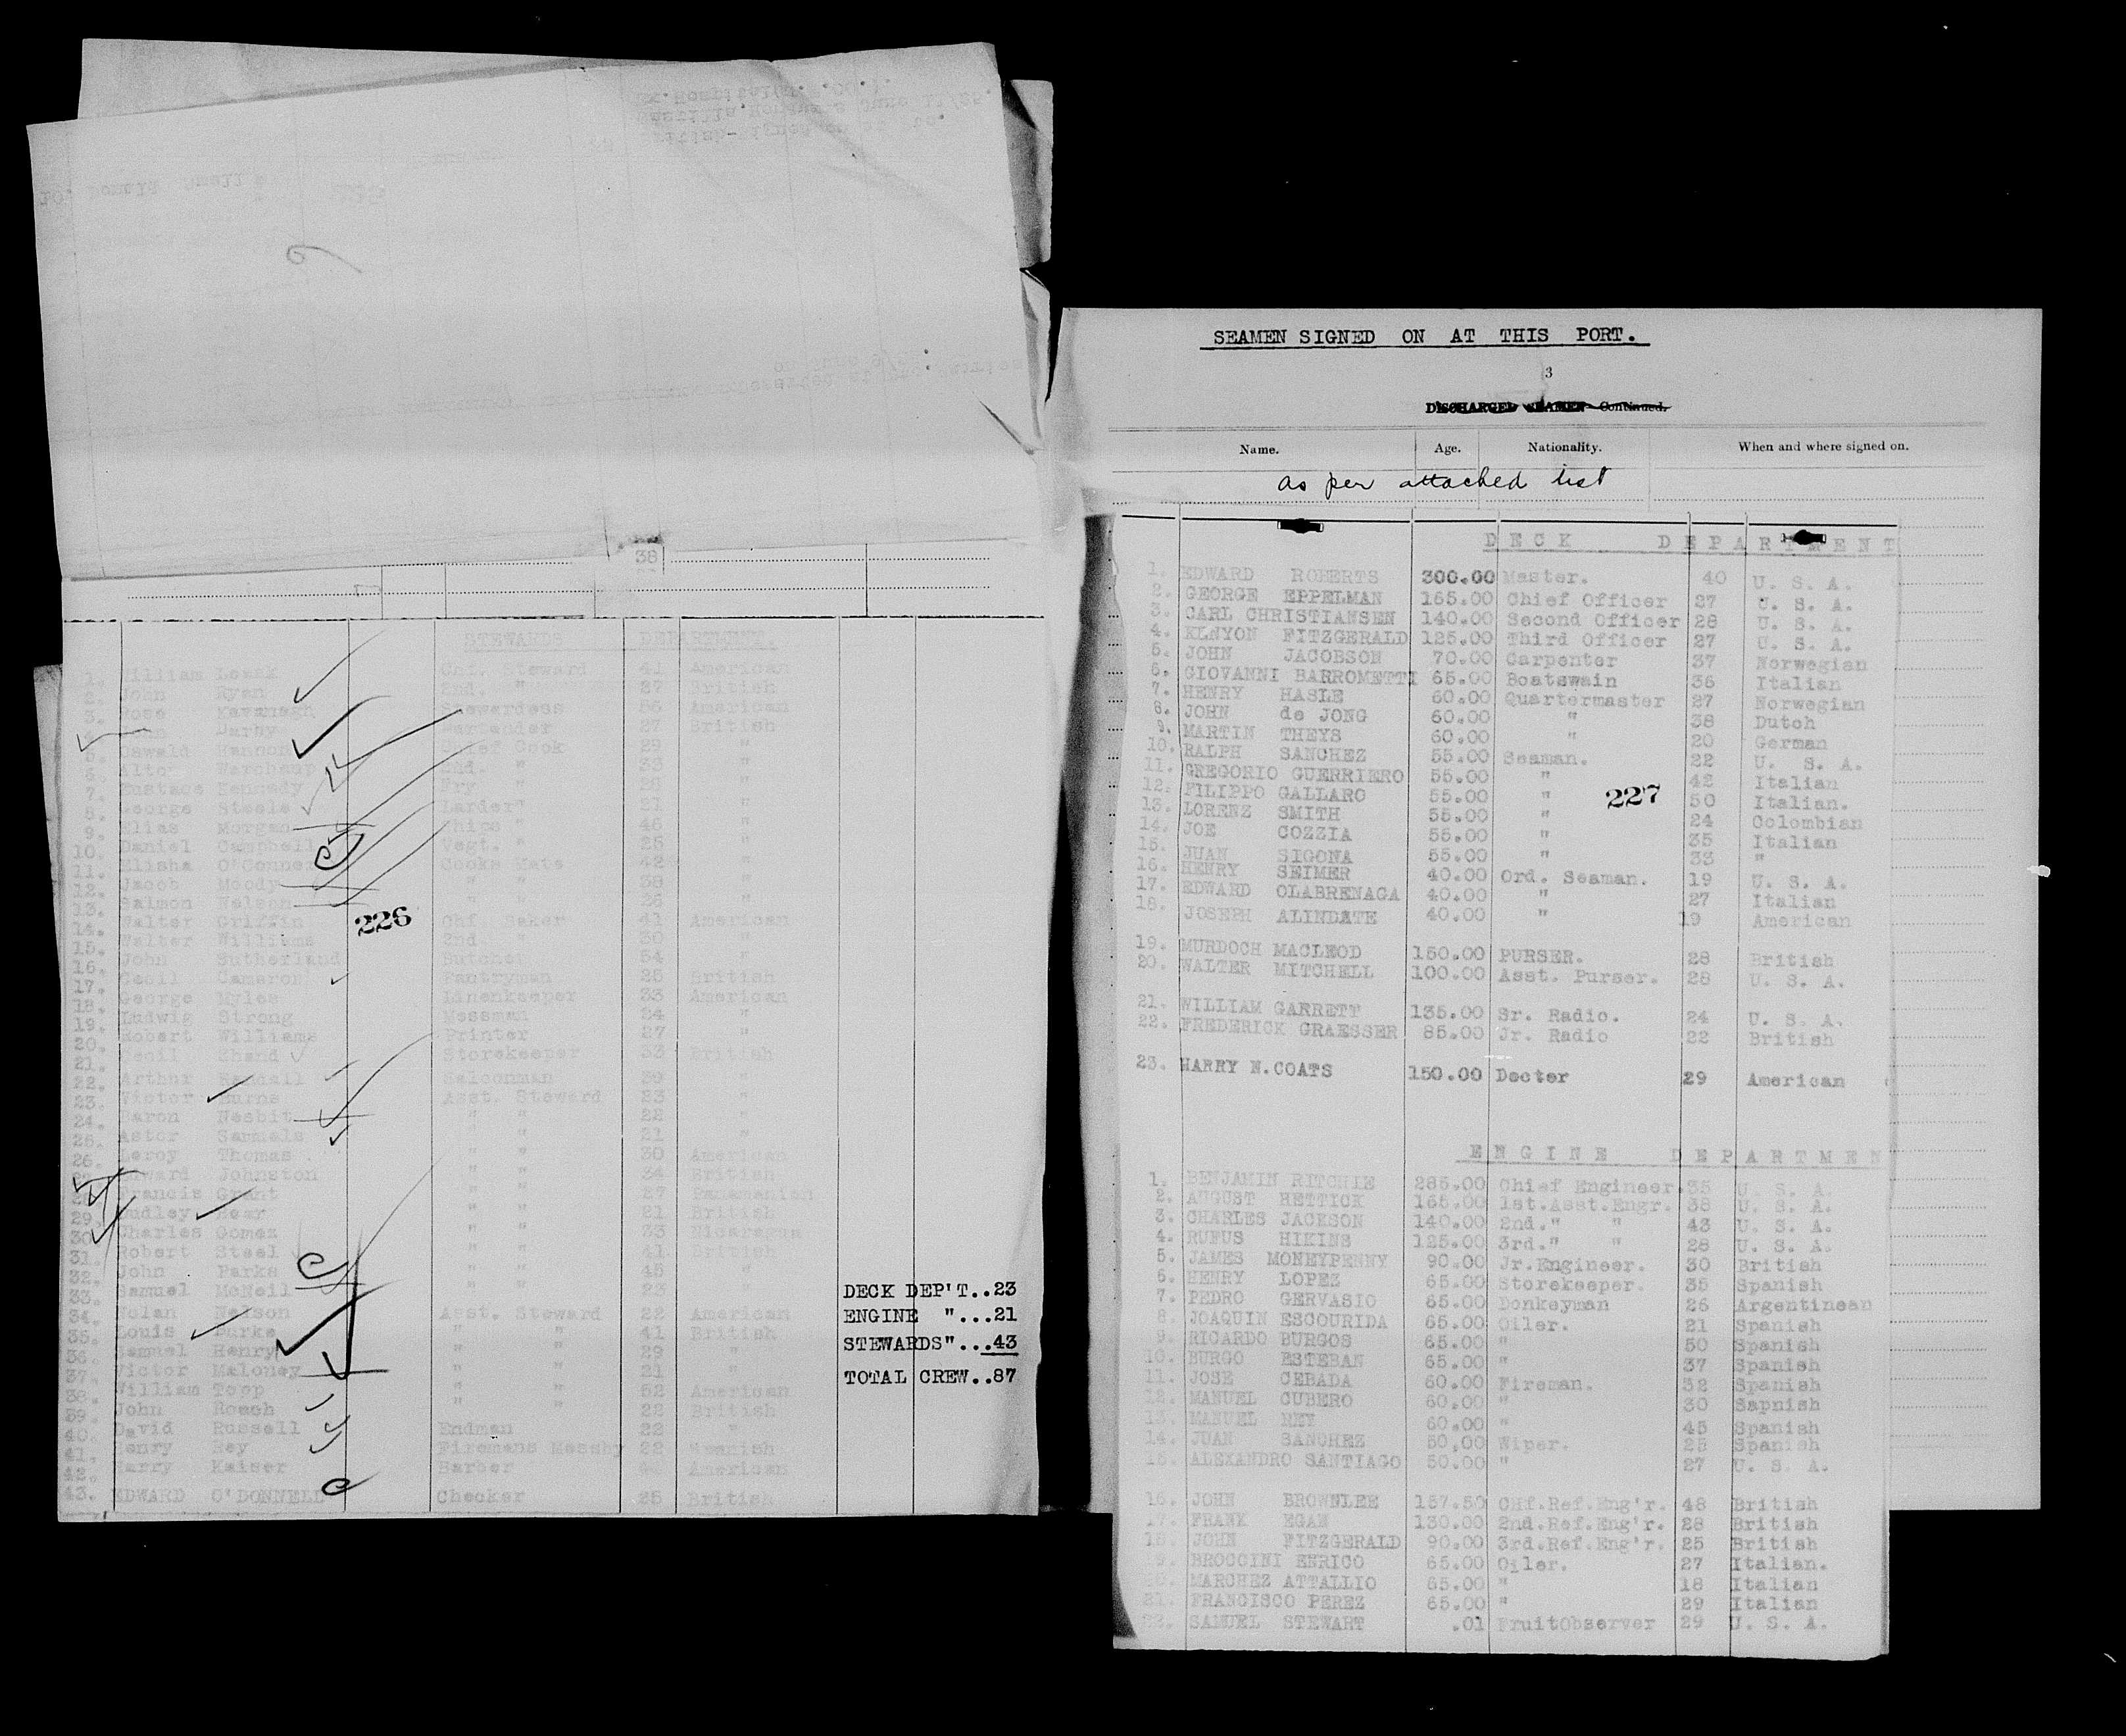 38
STEWARDS DEPARTMENT.
1. William Lomax Chf. Steward 41 American
2. John Ryan 2nd. " 37 British
3. Rose Kavanagh Stewardess 56 American
4. Darby Bartender 27 British
5. Oswald Hannon Chief Cook 29 "
6. 2nd. " 33 "
7. Eustace Kennedy Fry " 28 "
8. George Steele Larder" 21 "
9. Elias Morgan Ships " 46 "
10. Daniel Campbell Vegt. " 25 "
11. Elisha Cooks Mate 42 "
12. Jacob Moody " " 38 "
13. Salmon Nelson " " 26 "
14. Walter Griffin Chf. Baker 41 American
15. Walter Williams 2nd. 30 "
16. John Sutherland Butcher 54 "
17. Cecil Cameron Pantryman 25 British
18. George Myles Linenkeeper 33 American
19. Ludwig Strong Messman 24 "
20. Robert Williams Printer 27 "
21. Cecil Shand Storekeeper 33 British
22. Arthur Randall Saloonman 30 "
23. Victor Burns Asst. Steward 23 "
24. Baron Nesbit " " 22 "
25. Astor Samuels " " 21 "
26. Leroy Thomas " " 30 American
Edward Johnston " " 34 British
Francis Grant " " 27 Panamanian
29. Dudley " " 21 British
30. Charles Gomez " " 33 Nicaraguan
31. Robert Steel " " 41 British
32. John Parks " " 45 "
33. Samuel McNeil " " 23 "
34. Nolan Nelson Asst. Steward 22 American
35. Louis Burke " " 41 British
36. Samuel Henry " " 29 "
37. Victor Maloney " " 21 "
38. William Topp " " 52 American
39. John Roach " " 22 British
40. David Russell Endman 22 "
41. Henry Rey Firemans Messby 22 Spanish
42. Harry Kaiser Barber American
43. EDWARD O'DONNELL Checker 25 British
226
DECK DEP'T..23
ENGINE "...21
STEWARDS"...43
TOTAL CREW..87
SEAMEN SIGNED ON AT THIS PORT.
3
DISCHARGED SEAMEN—Continued.
Name. Age. Nationality. When and where signed on.
as per attached list
DECK DEPARTMENT
1. EDWARD ROBERTS 300.00 Master. 40 U. S. A.
2. GEORGE EPPELMAN 165.00 Chief Officer 27 U. S. A.
3. CARL CHRISTIANSEN 140.00 Second Officer 28 U. S. A.
4. KENYON FITZGERALD 125.00 Third Officer 27 U. S. A.
5. JOHN JACOBSON 70.00 Carpenter 37 Norwegian
6. GIOVANNI BARROMETTI 65.00 Boatswain 36 Italian
7. HENRY HASLE 60.00 Quartermaster 27 Norwegian
8. JOHN de JONG 60.00 " 38 Dutch
9. MARTIN THEYS 60.00 " 20 German
10. RALPH SANCHEZ 55.00 Seaman. 22 U. S. A.
11. GREGORIO GUERRIERO 55.00 " 42 Italian
12. FILIPPO GALLARO 55.00 " 50 Italian.
13. LORENZ SMITH 55.00 " 24 Colombian
14. JOE COZZIA 55.00 " 35 Italian
15. JUAN SIGONA 55.00 " 33 "
16. HENRY SEIMER 40.00 Ord. Seaman. 19 U. S. A.
17. EDWARD OLABRENAGA 40.00 " 27 Italian
18. JOSEPH ALINDATE 40.00 " 19 American
227
19. MURDOCH MACLEOD 150.00 PURSER. 28 British
20. WALTER MITCHELL 100.00 Asst. Purser. 28 U. S. A.
21. WILLIAM GARRETT 135.00 Sr. Radio. 24 U. S. A.
22. FREDERICK GRAESSER 85.00 Jr. Radio 22 British
23. HARRY N.COATS 150.00 Docter 29 American
ENGINE DEPARTMEN
1. BENJAMIN RITCHIE 285.00 Chief Engineer. 35 U. S. A.
2. AUGUST HETTICK 165.00 1st.Asst.Engr. 38 U. S. A.
3. CHARLES JACKSON 140.00 2nd." " 43 U. S. A.
4. RUFUS HIKINS 125.00 3rd." " 28 U. S. A.
5. JAMES MONEYPENNY 90.00 Jr.Engineer. 30 British
6. HENRY LOPEZ 65.00 Storekeeper. 35 Spanish
7. PEDRO GERVASIO 65.00 Donkeyman 26 Argentinean
8. JOAQUIN ESCOURIDA 65.00 Oiler. 21 Spanish
9. RICARDO BURGOS 65.00 " 50 Spanish
10. BURGO ESTEBAN 65.00 " 37 Spanish
11. JOSE CEBADA 60.00 Fireman. 32 Spanish
12. MANUEL CUBERO 60.00 " 30 Sapnish
13. MANUEL REY 60.00 " 45 Spanish
14. JUAN SANCHEZ 50.00 Wiper. 25 Spanish
15. ALEXANDRO SANTIAGO 50.00 " 27 U. S. A.
16. JOHN BROWNLEE 157.50 CHf.Ref.Eng'r. 48 British
17. FRANK EGAN 130.00 2nd.Ref.Eng'r. 28 British
18. JOHN FITZGERALD 90.00 3rd.Ref.Eng'r. 25 British
19. BROCCINI ENRICO 65.00 Oiler. 27 Italian.
20. MARCHEZ ATTALLIO 65.00 " 18 Italian
21. FRANCISCO PEREZ 65.00 " 29 Italian
22. SAMUEL STEWART .01 FruitObserver 29 U. S. A.